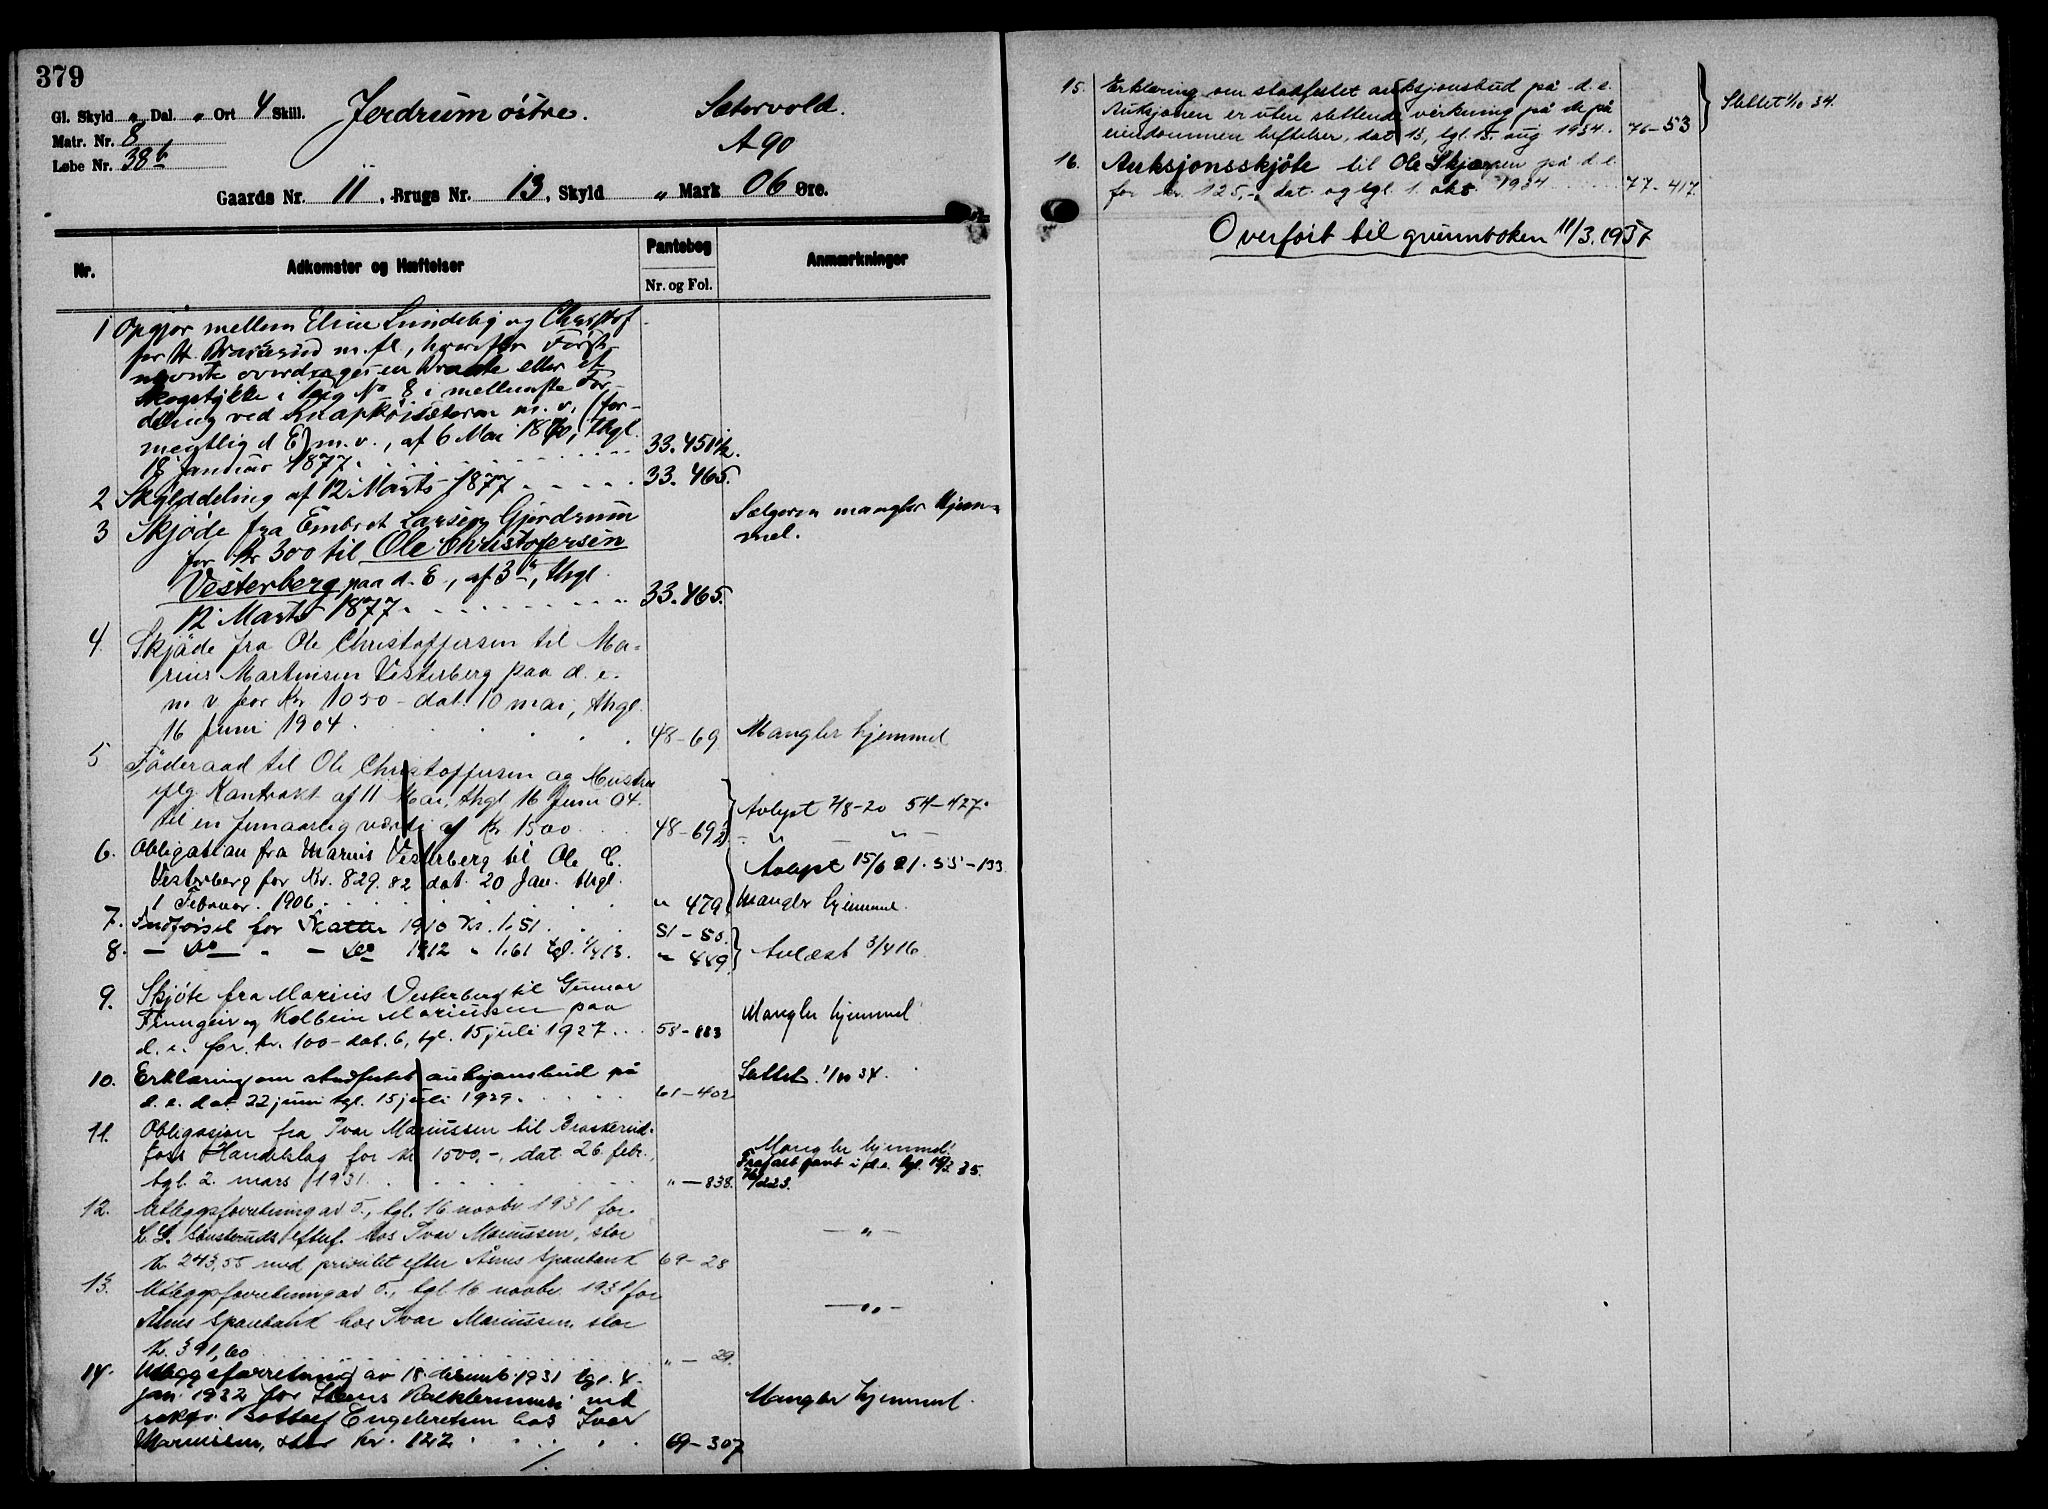 379
Gl. Skyld „ Dal. „ Ort 4 Skill.
Matr. Nr. 8
Løbe Nr. 38b
Jerdrum østre.
Sætervold.
A 90
Gaards Nr. 11, Brugs Nr. 13, Skyld „ Mark 06 Øre.
Nr.
Adkomster og Hæftelser
Pantebog
Nr. og Fol.
Anmærkninger
1 Opgjør mellem Eline Lundeby og Christof
fer H. m. fl., hvorefter Først-
nævnte overdrages en eller et
Skogstykke i Teig No 8 i mellemste For-
deling ved m. v. (for-
mentlig d E) m. v., af 6 Mai 1870, thgl.
18 Januar 1877. 33. 451½.
2 Skylddeling af 12 Marts 1877 33. 465.
3 Skjøde fra Embret Larsen Gjerdrum
for Kr 300 til Ole Christofersen
Vesterberg paa d. E., af 3, thgl.
12 Marts 1877. 33. 465.
Sælgeren mangler Hjem-
mel.
4. Skjøde fra Ole Christoffersen til Ma-
rius Martinsen Vesterberg paa d. e.
m v for Kr 1050 - dat. 10 mai, thgl.
16 Juni 1904. 48-69 Mangler hjemmel
5 Føderaad til Ole Christoffersen og Hustru
iflg Kontrakt af 11 Mai, thgl 16 Juni 04.
til en femaarlig værdi af Kr 1500 48-69
Avlyst 7/8-20 54-427.
6. Obligation fra Marius Vesterberg til Ole C.
Vesterberg for Kr. 829.82 dat. 20 Jan. thgl.
1 Februar 1906. „ 479
Avlyst 15/6 21. 55-133
Mangler hjemmel.
7. Indførsel for Skatter 1910 Kr. 1.51. 51-50.
8. - Do - „ - Do 1912 „ 1.61 tgl. 1/4 13. „ 449.
Avlæst 3/4 16.
9. Skjøte fra Marius Vesterberg til Gunnar
og Kolbein Mariussen paa
d. e. for kr. 100 - dat. 6, tgl. 15 juli 1927. 58-883
Mangler hjemmel
10. Erklæring om stadfestet auksjonsbud på
d. e. dat 22 juni tgl. 15 juli 1929. 61-402
Slettet 1/10 34.
11. Obligasjon fra Ivar Mariussen til
foss Handelslag for kr 1500,-, dat 26. febr.,
tgl. 2. mars 1931. „ - 838.
Mangler hjemmel.
Frafalt pant i d. e. tgl. 35.
76/223.
12. Utleggsforretning av 5., tgl. 16 novbr. 1931 for
efterf. hos Ivar Mariussen, stor
kr. 243,55 med prioritet efter Årnes Sparebank 69-28
- „ -
13. Utleggsforretning av 5., tgl 16 novbr. 1931 for
Årnes Sparebank hos Ivar Mariussen, stor
kr. 391,60 „ - 29.
- „ -
14. Utleggsforretning av 18. desemb. 1931 tgl. 4.
jan 1932 for Steens ved
Engebretsen hos Ivar
Mariussen, stor kr. 122 69-307
Mangler hjemmel.
15. Erklæring om stadfestet auksjonsbud på d. e.
Auksjonen er uten slettende virkning på de på
eiendommen heftelser, dat 13, tgl. 15. aug 1934. 76-53
Slettet 1/10 34.
16. Auksjonsskjøte til Ole Skjærpen på d. e.
for kr. 125,-, dat og tgl. 1. okt 1934 77-417.
Overført til grunnboken 11/3.1937